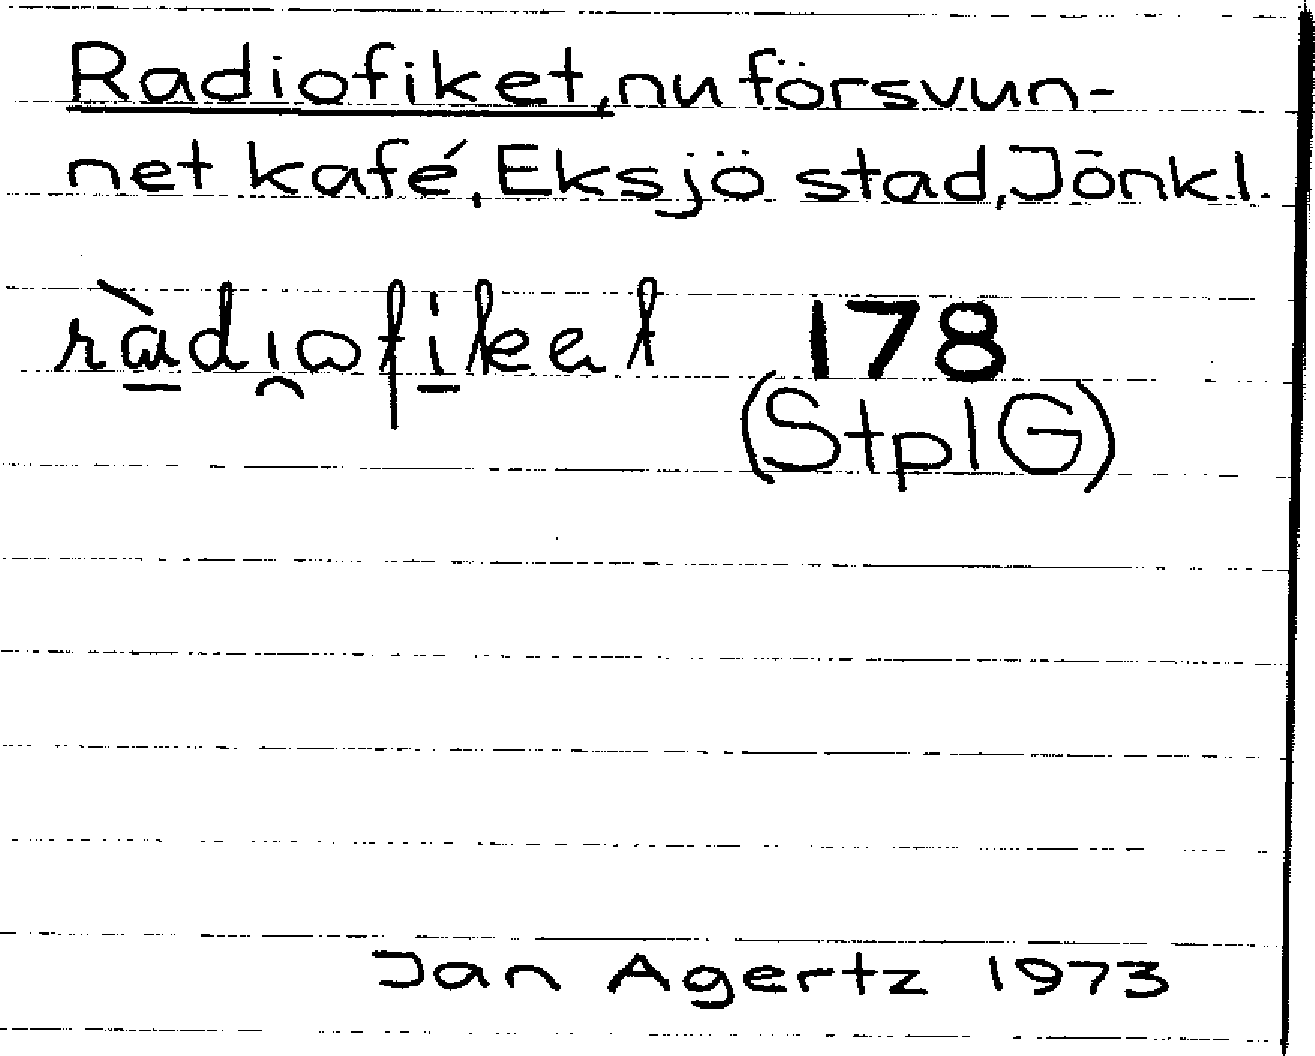 Radiofiket, nu försvun-
net kafé, Eksjö stad, Jönk.l.
ràdiofikət 178
(StplG)
Jan Agertz 1973